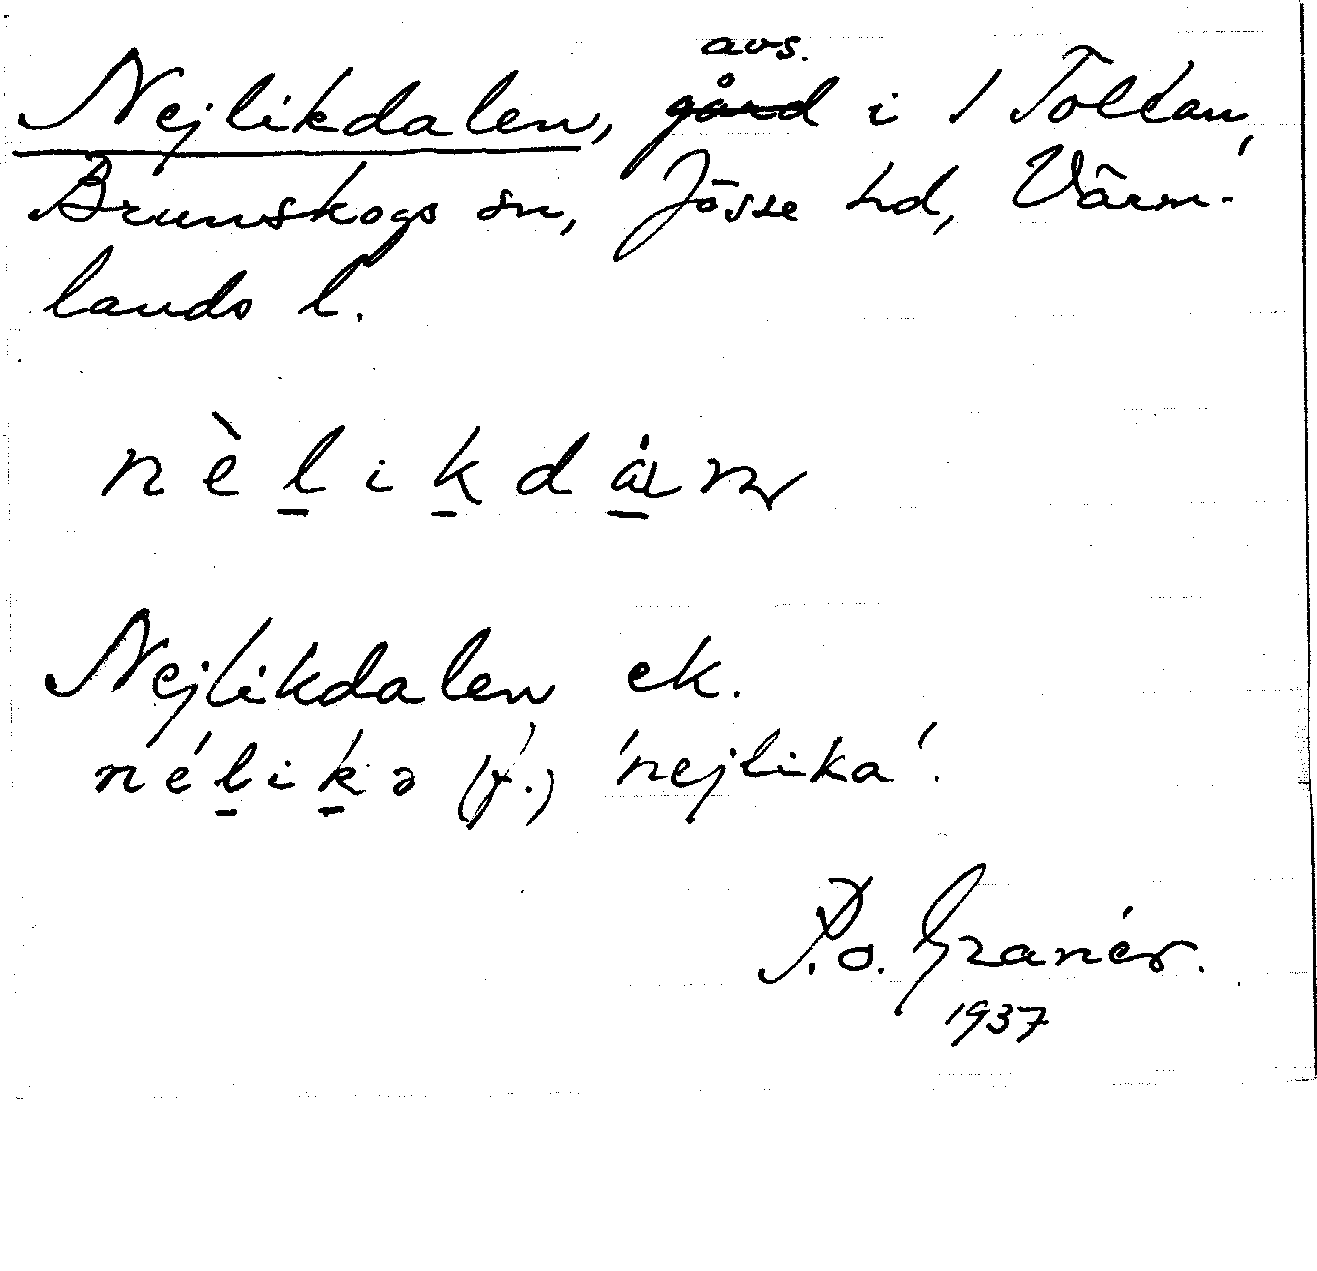 avs.
Nejlikdalen, gård i 1 Toltan,
Brunskogs sn, Jösse hd, Värm-
lands l.
Nejlikdalen ek.
nélikə (f.) 'nejlika'.
P.o. Granér.
1937